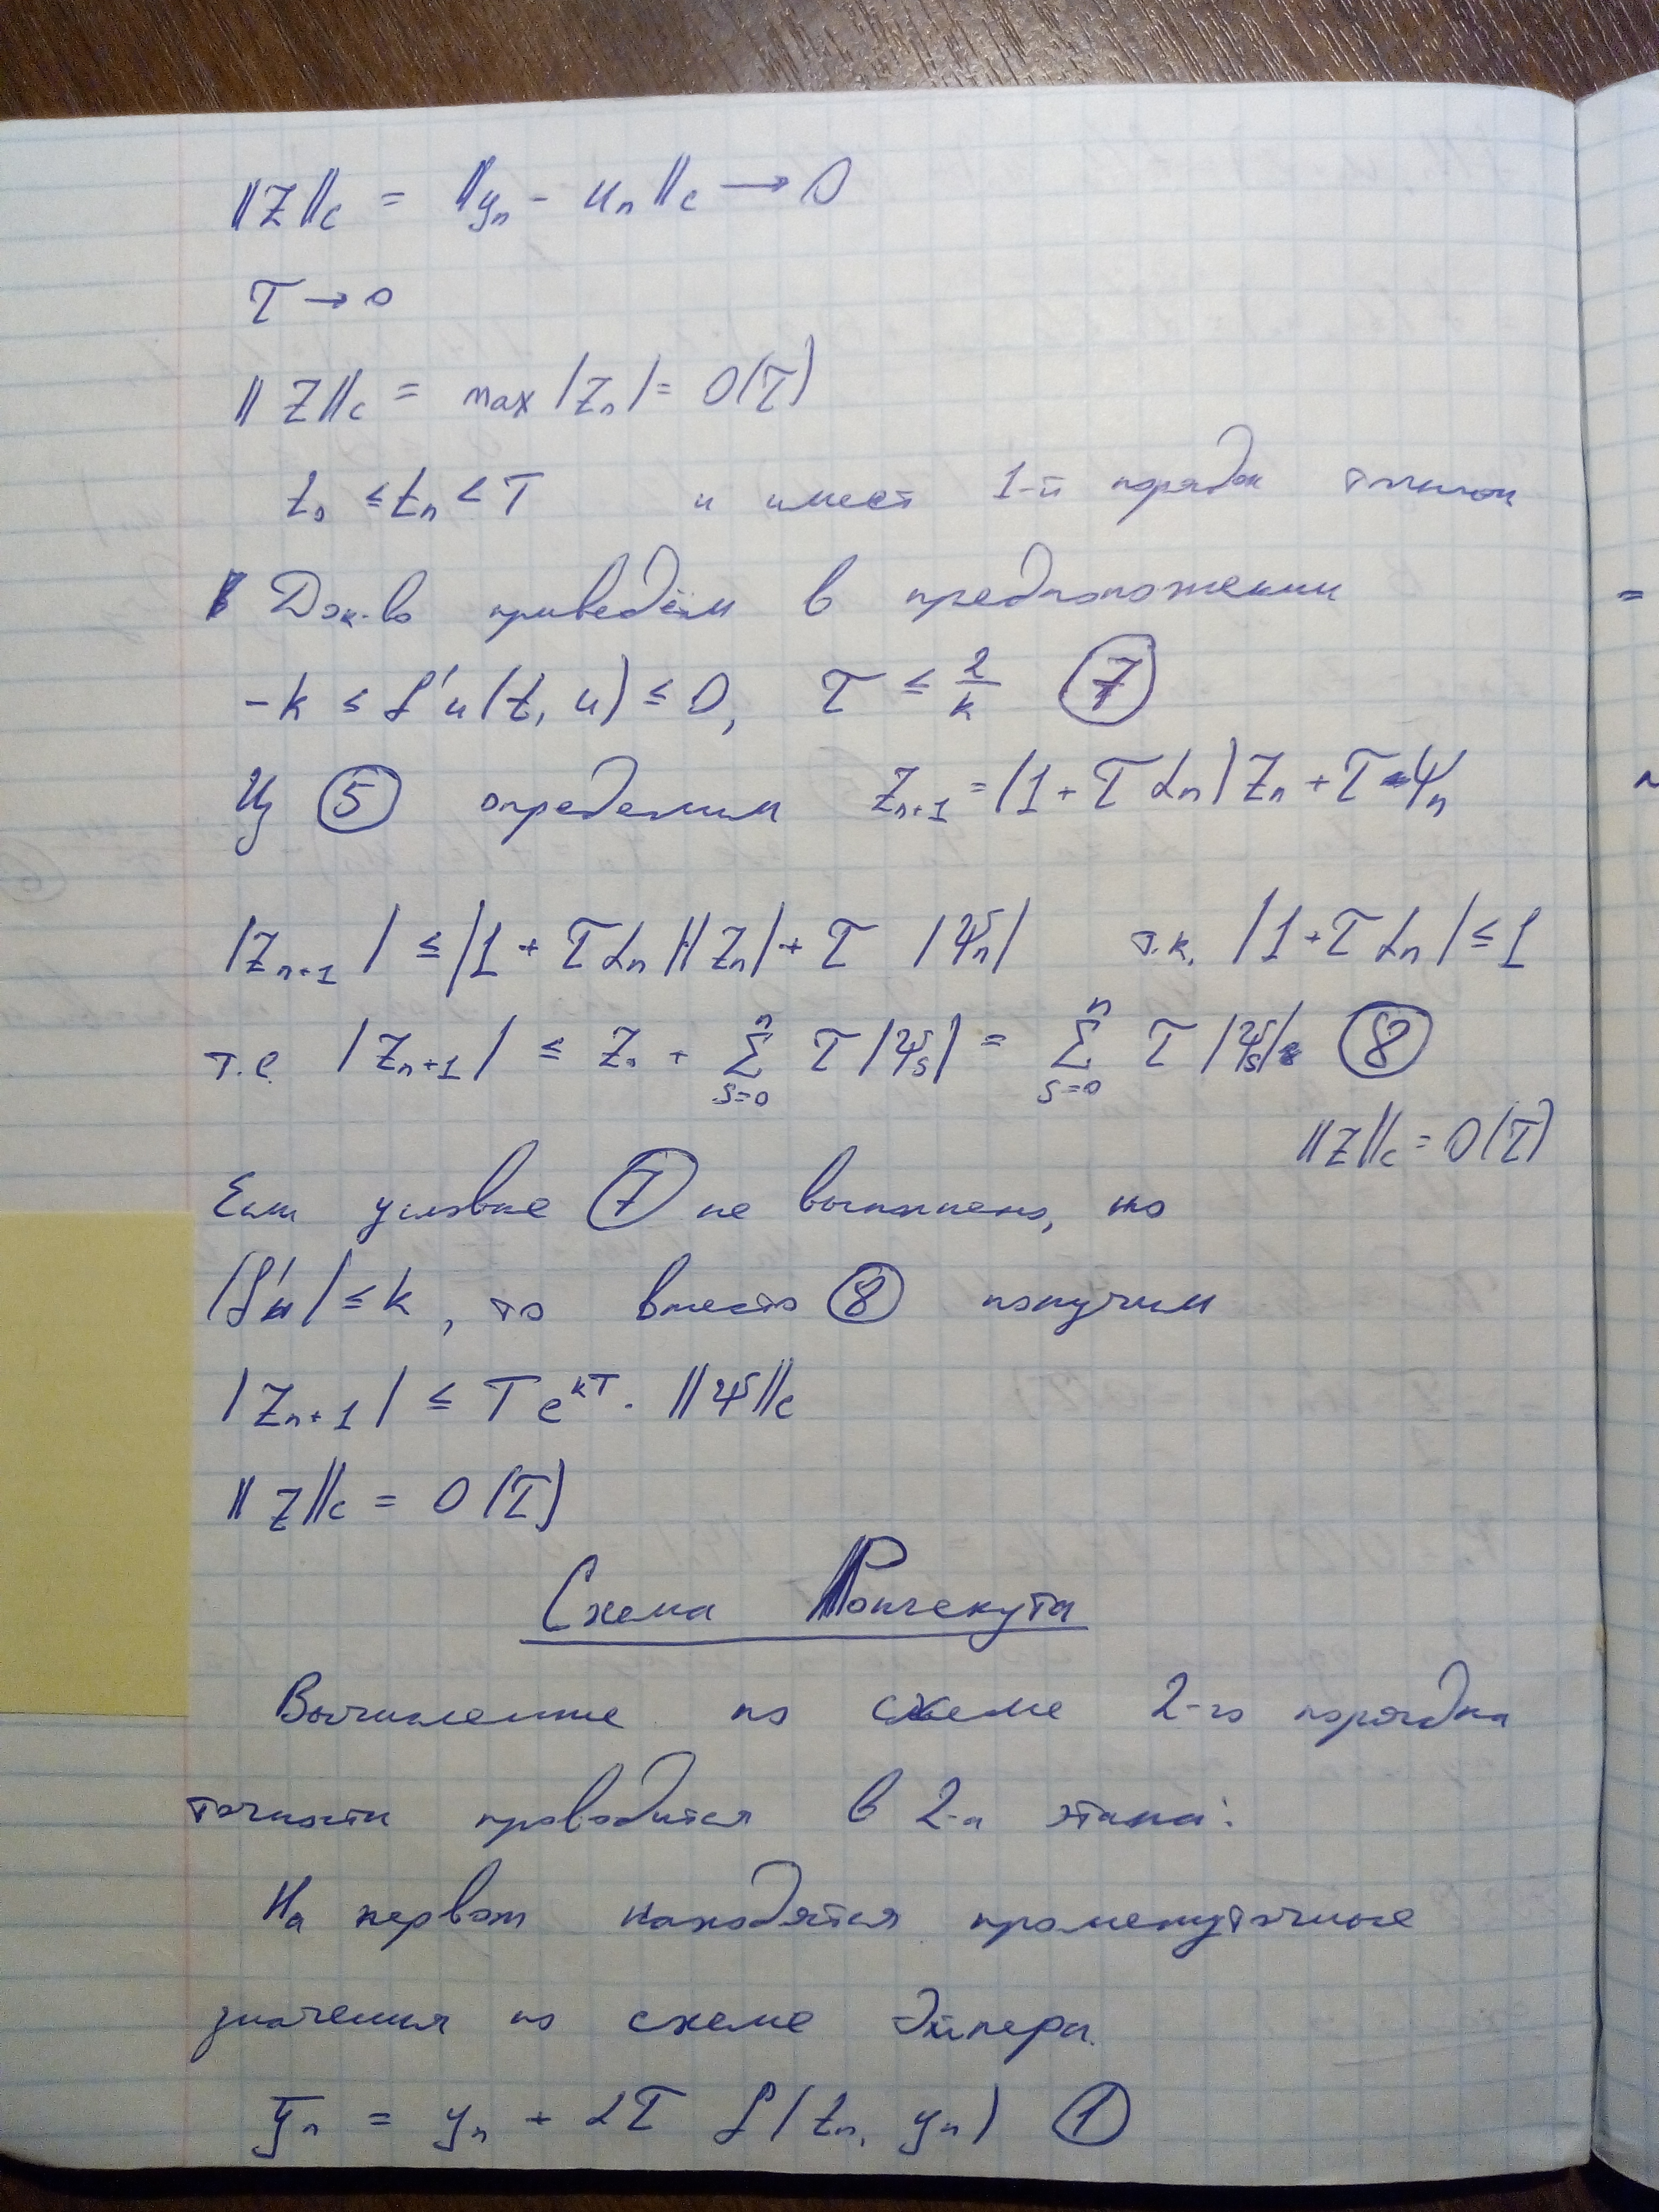 ‖Z‖c = ‖yₙ - uₙ‖c → 0
τ → 0
‖Z‖c = max |Zₙ| = O(τ)
t₀ ≤ tₙ < T и имеет 1-й порядок точности
Док-во приведём в предположении
-k ≤ f'u(t, u) ≤ 0, τ ≤ 2/k ⑦
Из ⑤ определим Zₙ₊₁ = (1 + τ αₙ) Zₙ + τ ψₙ
|Zₙ₊₁| ≤ |1 + τ αₙ| |Zₙ| + τ |ψₙ| т.к. |1 + τ αₙ| ≤ 1
т.е. |Zₙ₊₁| ≤ Z₀ + Σₛ₌₀ⁿ τ |ψₛ| = Σₛ₌₀ⁿ τ |ψₛ| ⑧
‖Z‖c = O(τ)
Если условие ⑦ не выполнено, но
|f'u| ≤ k, то вместо ⑧ получим
|Zₙ₊₁| ≤ T e^{kT} · ‖ψ‖c
‖Z‖c = O(τ)
Схема Ронгекута
Вычисление по схеме 2-го порядка
точности проводится в 2-а этапа:
На первом находятся промежуточные
значения по схеме Эйлера.
ȳₙ = yₙ + ατ f(tₙ, yₙ) ①